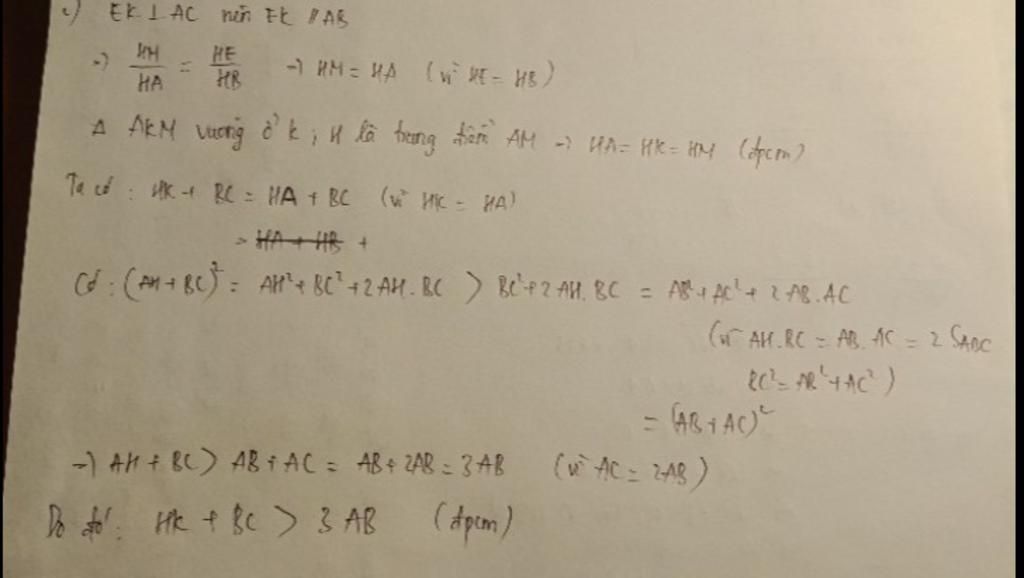 c) EK ⊥ AC nên EK // AB
→ HM/HA = HE/HB → HM = HA (vì HE = HB)
Δ AKM vuông ở K, H là trung điểm AM → HA = HK = HM (đpcm)
Ta có: HK + BC = HA + BC (vì HK = HA)
> HA + HB +
Có: (AH + BC)² = AH² + BC² + 2AH.BC > BC² + 2AH.BC = AB² + AC² + 2AB.AC
(vì AH.BC = AB.AC = 2 S_ABC
BC² = AB² + AC²)
= (AB + AC)²
→ AH + BC > AB + AC = AB + 2AB = 3AB (vì AC = 2AB)
Do đó: HK + BC > 3AB (đpcm)